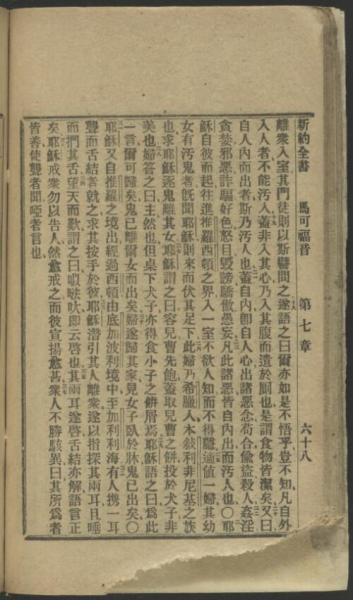 新約全書 馬可福音 第七章 六十八
離衆入室其門徒則以斯譬問之遂語之曰爾亦如是不悟乎豈不知凡自外
入人者不能汚人蓋非入其心乃入其腹而遺於厠也是謂食物皆潔矣又曰
自人內而出者斯乃汚人也蓋自內卽人心出諸惡念苟合偸盜殺人姦淫
貪婪邪惡詭騙好色惡目毀謗驕傲愚妄凡此諸惡皆自內出而汚人也〇耶
穌自彼而起往進推羅西頓之界入一室不欲人知而不得隱適値一婦其幼
女有汚鬼者旣聞耶穌則來而伏其足下此婦乃希臘人本敍利非尼基之族
也求耶穌逐鬼離其女耶穌謂之曰容兒曹先飽蓋取兒曹之餅投於犬子非
美也婦答之曰主然也但桌下犬子亦得食小子之餅屑焉耶穌語之曰爲此
一言爾可歸矣鬼已離爾女而出矣婦遂歸其家見女子臥於牀鬼已出矣〇
耶穌又自推羅之境出經過西頓由底加波利境中至加利利海有人攜一耳
聾而舌結者就之求其按手於彼耶穌潛引其人離衆遂以指探其兩耳且唾
而捫其舌望天而歎謂之曰㕭㕭吠卽云啓也其兩耳遂啓舌結亦解語言正
矣耶穌戒衆勿以告人然愈戒之而彼宣揚愈甚衆人不勝駭異曰其所爲者
皆善使聾者聞啞者言也